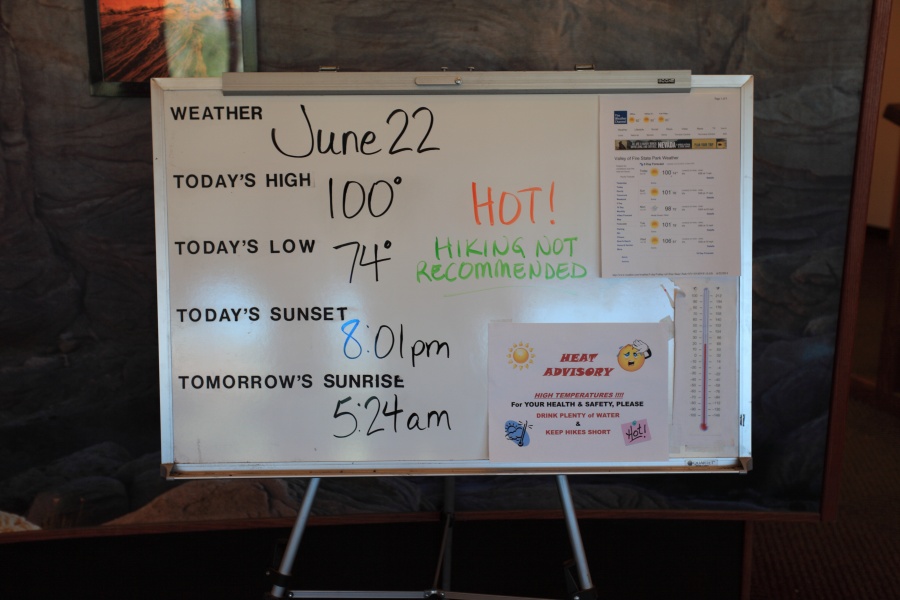 WEATHER
June 22
TODAY'S HIGH
100°
HOT!
TODAY'S LOW
74°
HIKING NOT
RECOMMENDED
TODAY'S SUNSET
8:01pm
TOMORROW'S SUNRISE
5:24am
Valley of Fire State Park Weather
NEVADA
100
101
98
101
HEAT
ADVISORY
HIGH TEMPERATURES !!!!
For YOUR HEALTH & SAFETY, PLEASE
DRINK PLENTY of WATER
&
KEEP HIKES SHORT
Hot!